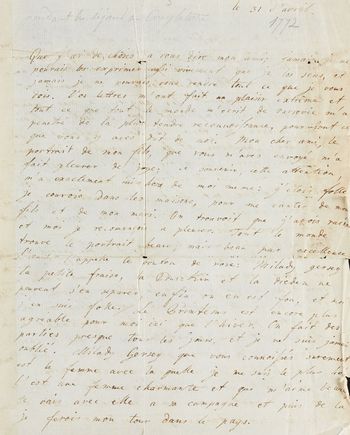 le 31 d'avril
1772
Que j'ai de choses a vous dire mon ami, jamais je ne
pourais les exprimer aussi vivement que je les sens, et
jamais je ne pourais vous rendre tout ce que je vous
dois. Vos lettres m'ont fait un plaisir extreme et
tout ce que tout le monde m'ecrit de varsovie m'a
penetré de la plus tendre reconnoissance, pour tout ce
que vous avés dit de moi. Mon cher ami, le
portrait de mon fils que vous m'avés envoyé m'a
fait pleurer de joye; ce souvenir, cette attention
m'a exactement mis hors de moi meme; j'etois folle
je courois dans les maisons, pour me vanter de mon
fils et de mon mari. On trouvoit que j'avois raison
et moi je recommencois a pleurer. Tout le monde
trouve le portrait beau; mais beau par excellence
l'appelle le bouton de rose; Milady Jersey
la petite fraise, la
peuvent s'en separer enfin on en est fou, et moi
j'en suis folle. Le Printems est encore plus
agreable pour moi ici que l'hiver. On fait des
parties presque tous les jours, et je ne suis jamais
oublié. Milady Gersey que vous connoissés surement
est la femme avec la quelle je me suis le plus lié
c'est une femme charmante et qui m'aime beaucoup
je vais avec elle a sa campagne et puis de la
je ferois mon tour dans le pays.